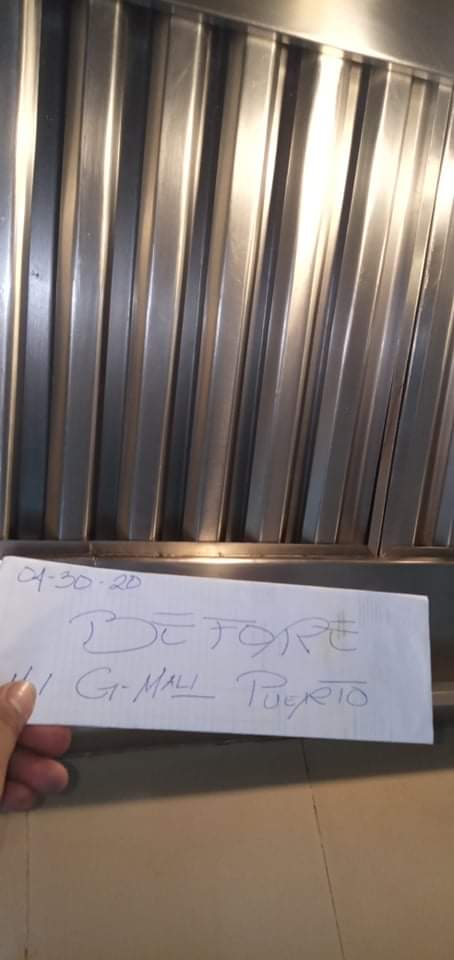 04-30-20
BEFORE
G-MALL PUERTO